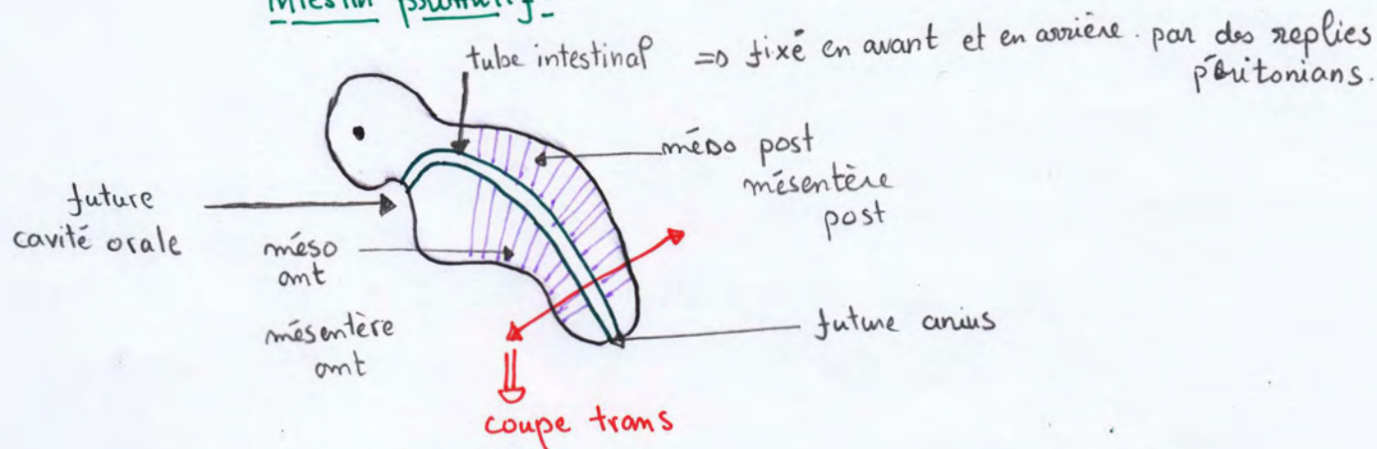 tube intestinal => fixé en avant et en arrière. par des replies
péritonians.
méso post
mésentère
post
future
cavité orale
méso
ant
mésentère
ant
future anius
coupe trans